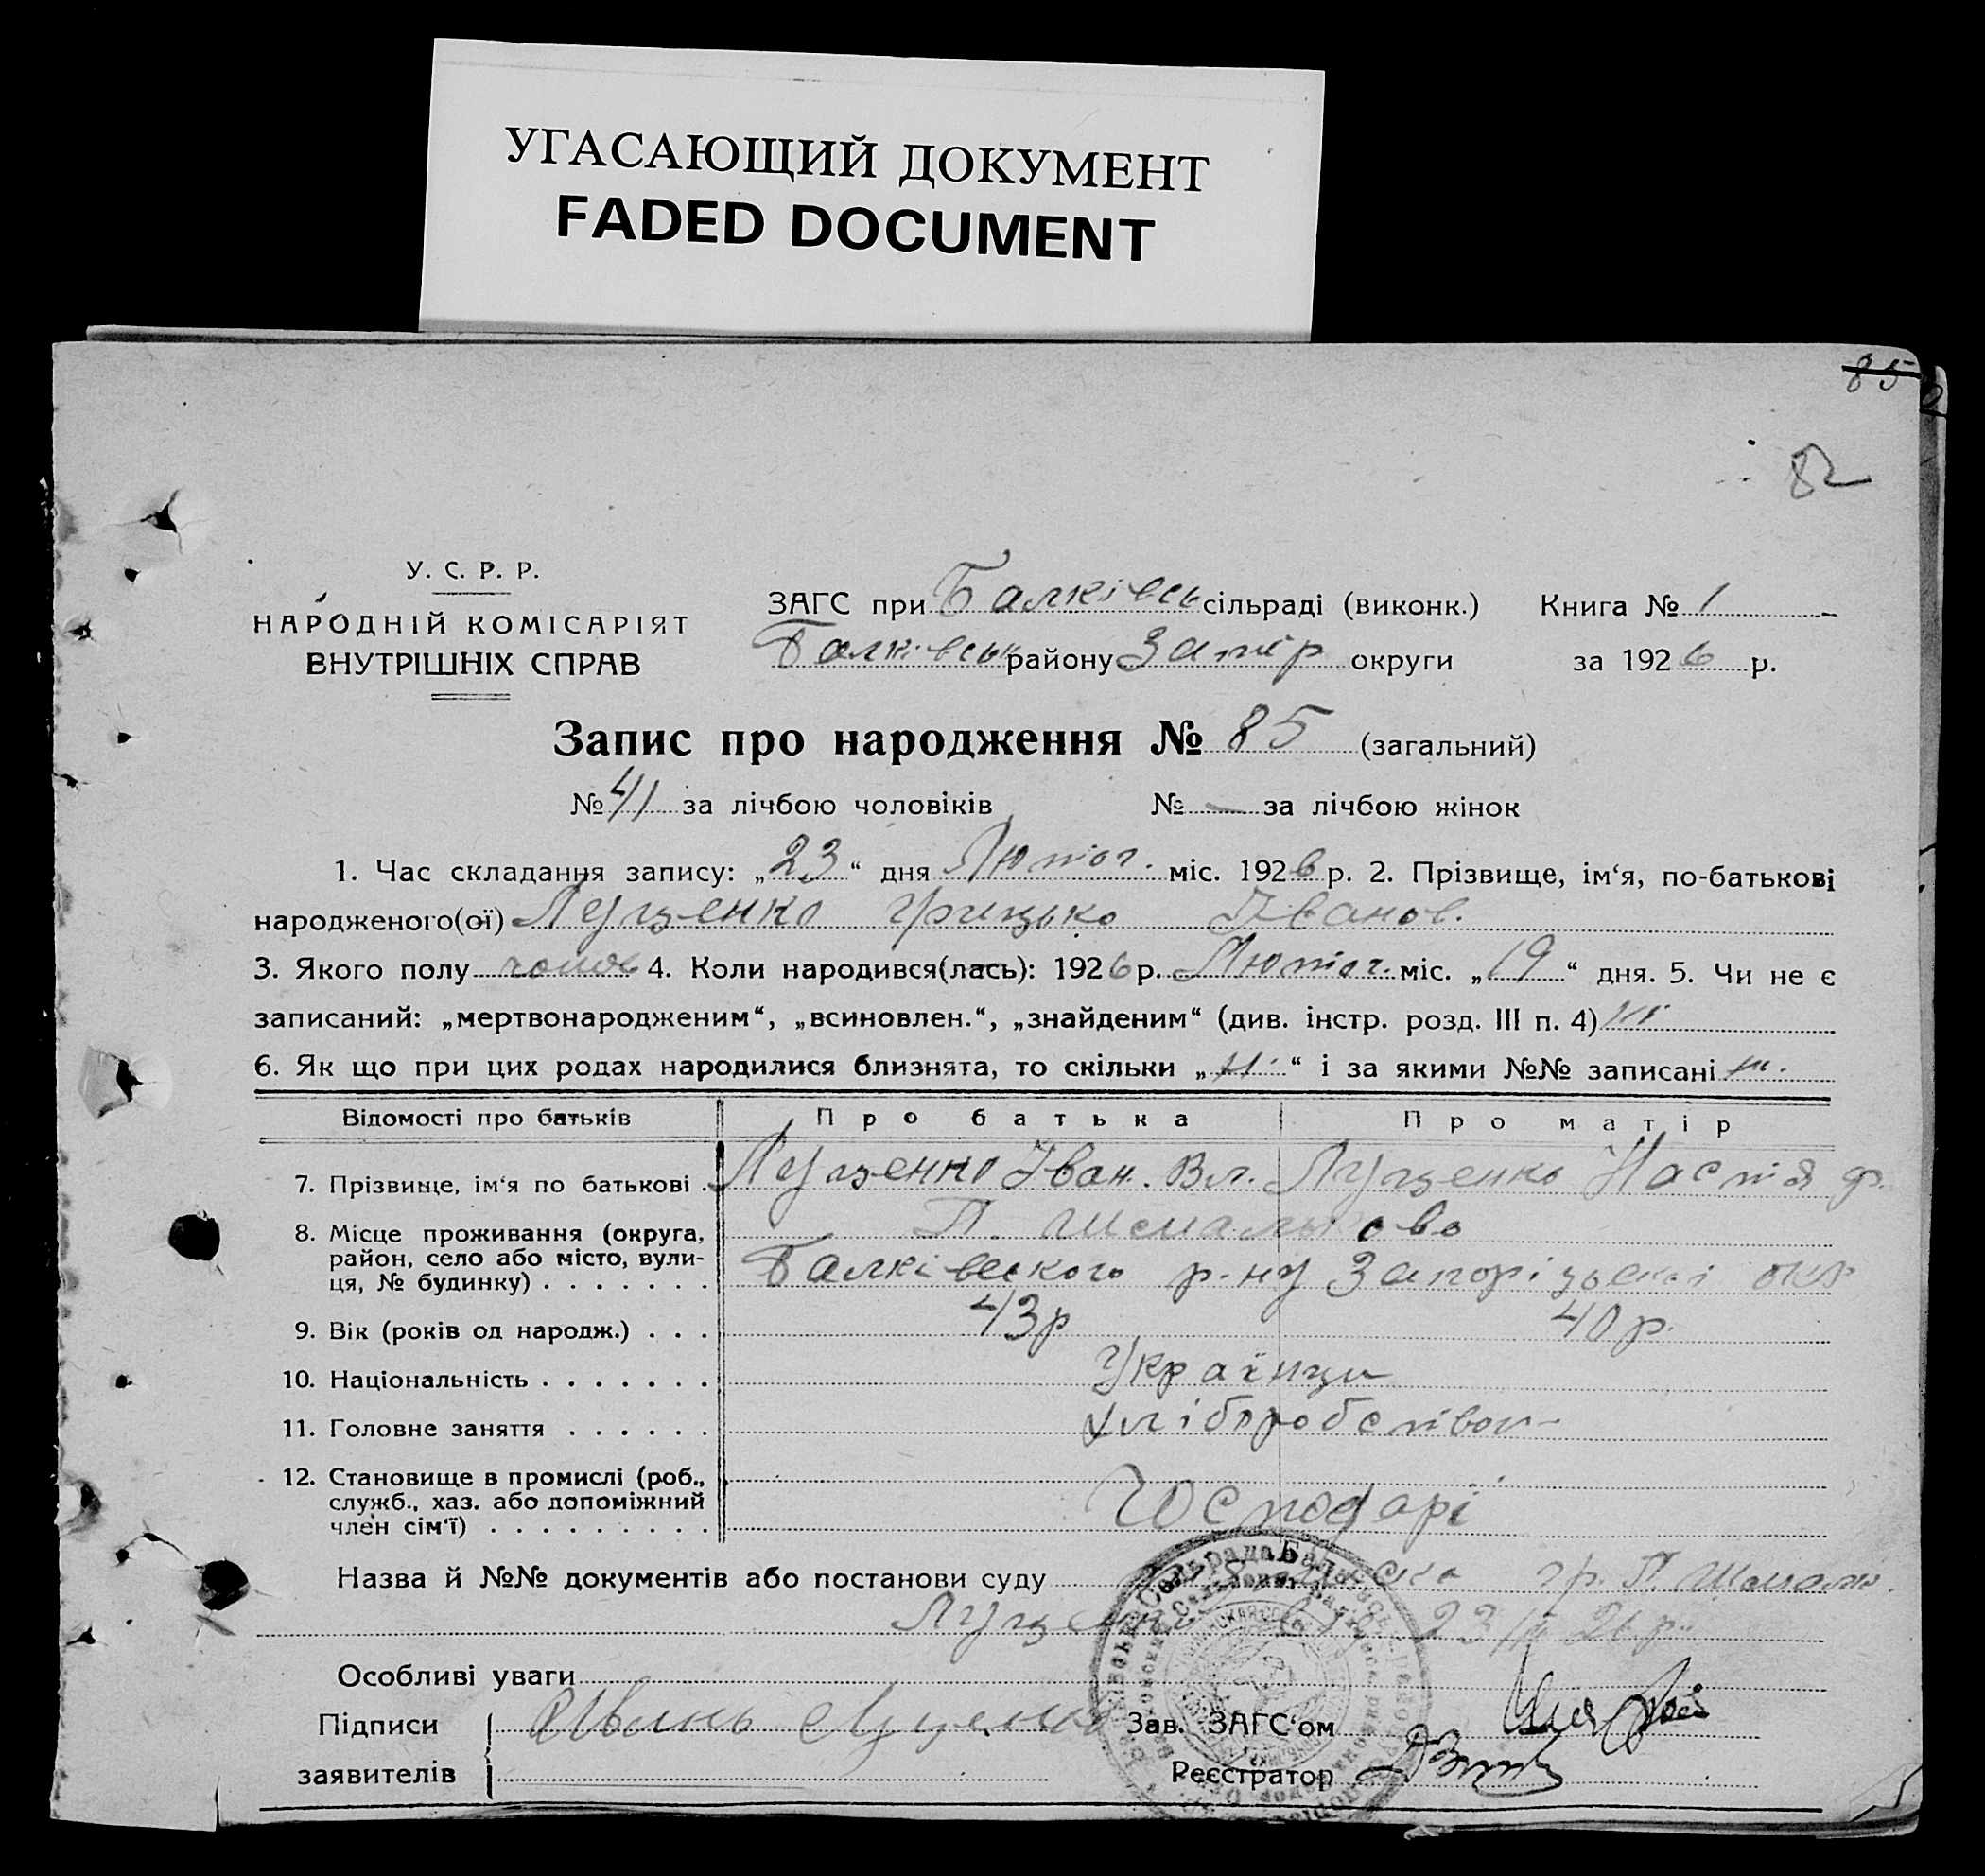 УГАСАЮЩИЙ ДОКУМЕНТ
FADED DOCUMENT
85
82
У. С. Р. Р.
НАРОДНІЙ КОМІСАРІЯТ
ВНУТРІШНІХ СПРАВ
ЗАГС при Балківсь сільраді (виконк.) Книга № 1
Балківськ району Запор округи за 1926 р.
Запис про народження № 85 (загальний)
№ 41 за лічбою чоловіків № — за лічбою жінок
1. Час складання запису: „23“ дня Лютог. міс. 1926 р. 2. Прізвище, ім‘я, по-батькові
народженого(ої) Луценко Грицько Іванов.
3. Якого полу чолов 4. Коли народився(лась): 1926 р. Лютог. міс. „19“ дня. 5. Чи не є
записаний: „мертвонародженим“, „всиновлен.“, „знайденим“ (див. інстр. розд. III п. 4) ні
6. Як що при цих родах народилися близнята, то скільки „ні“ і за якими №№ записані
Відомості про батьків Про батька Про матір
7. Прізвище, ім‘я по батькові . Луценко Іван. Вл. Луценко Настя Ф.
8. Місце проживання (округа, П.
район, село або місто, вули-
ця, № будинку) . . . . . . . Балківського р-ну Запорізької окр
9. Вік (років од народж.) . . . 43р 40р.
10. Національність . . . . . . . Українци
11. Головне заняття . . . . . . Хліборобство
12. Становище в промислі (роб.,
служб., хаз. або допоміжний
член сім‘ї) . . . . . . . . . Господарі
Назва й №№ документів або постанови суду гр. П.
Луценко від 23/II 26 р.
Особливі уваги
Підписи Ивань Луценко Зав. ЗАГС‘ом
заявителів Реєстратор